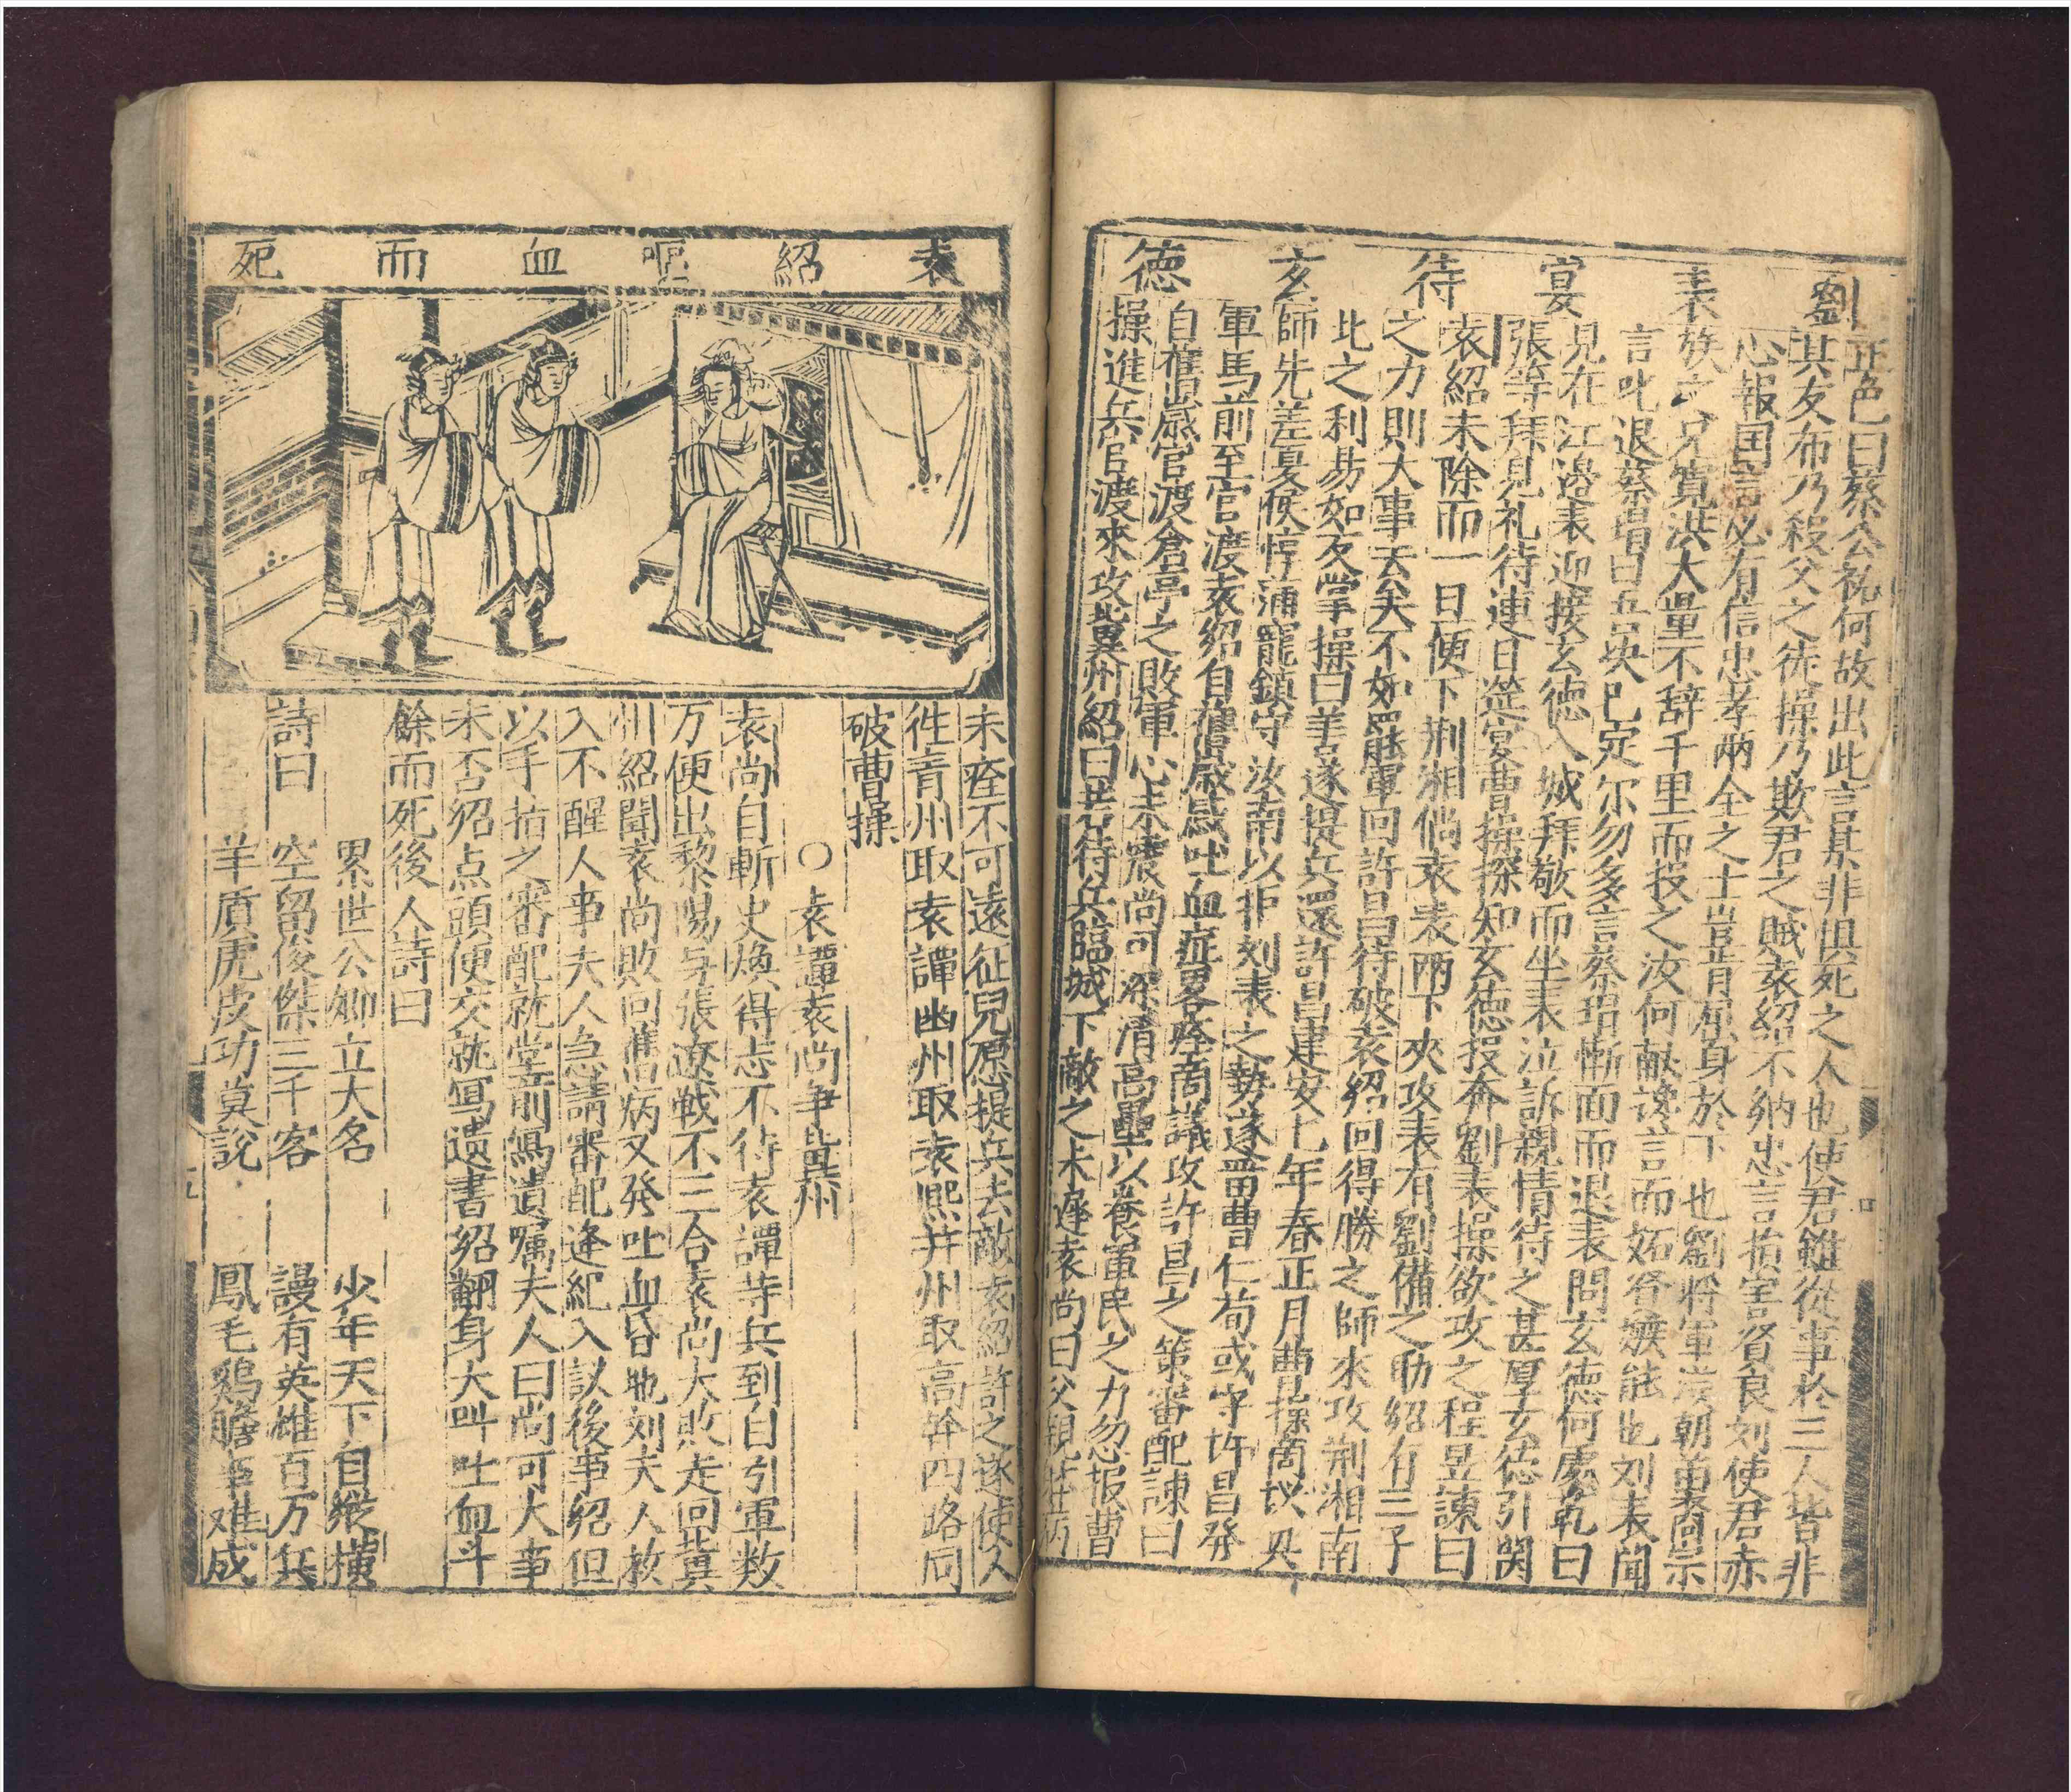 劉表宴待玄德
正色曰蔡公祝何故出此言某非惧死之人也使君雖從事於三人皆非
其友布乃殺父之徒操乃欺君之賊袁紹不納忠言損害賢良刘使君亦
心報国言必有信忠孝兩全之士豈肯屈身於下也劉將軍漢朝苗裔宗
族之兄寬洪大量不辞千里而投之汝何献讒言而妬
言叱退蔡瑁曰吾矣已定尔勿多言蔡瑁惭面而退表問玄德何處乾曰
見在江邉表迎接玄德入城拜敬而坐表泣訴親情待之甚厚玄德引関
張等拜見礼待連日筵宴曹操探知玄德投奔劉表操欲攻之程昱諫曰
袁紹未除而一日便下荆湘倘袁表兩下夾攻表有劉備之助紹有三子
之力則大事去矣不如罷軍回許昌待破袁紹回得勝之師來攻荆湘南
北之利易如反掌操曰羊遂提兵還許昌建安七年春正月曹操商议兴
師先差夏候惇蒲寵鎮守汝南以拒刘表之勢遂畱曹仁荀或守許昌發
軍馬前至官渡袁紹自舊歲感吐血症畧痊商議攻許昌之策審配諌曰
自舊歲官渡倉亭之敗軍心未震尚可深溝高壘以養軍民之力忽报曹
操進兵官渡來攻冀州紹曰若待兵臨城下敵之未遲袁尚曰父親
袁紹嘔血而死
未痊不可遠征兒愿提兵去敵袁紹許之遂使人
徃青州取袁譚幽州取袁熙并州取高幹四路同
破曹操
〇袁譚袁尚争冀州
袁尚自斬史煥得志不待袁譚等兵到自引軍数
万便出黎陽与張遼戦不三合袁尚大敗走回冀
州紹聞袁尚敗回舊病又発吐血昏地刘夫人救
入不醒人事夫人急請審配逢紀入議後事紹但
以手指之審配就堂前寫遺嘱夫人曰尚可大事
未否紹点頭便交就寫遗書紹翻身大叫吐血斗
餘而死後人詩曰
累世公卿立大名 少年天下自縦横
詩曰 空留俊傑三千客 謾有英雄百万兵
羊質虎皮功莫說 鳳毛鷄膽事难成